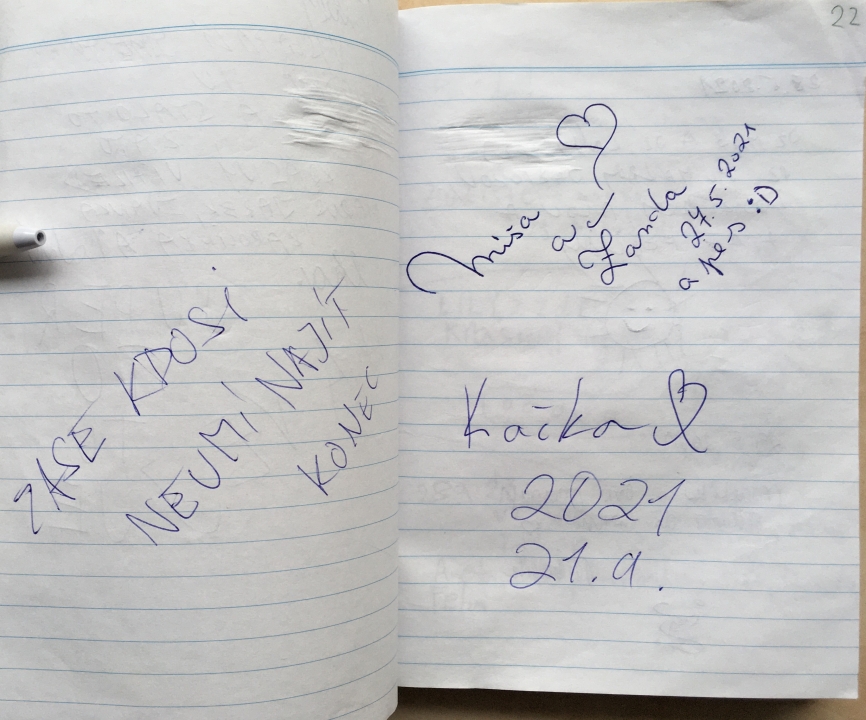 ZASE KDOSI
NEUMÍ NAJÍT
KONEC
22
Míša
a
Janda
27.5.2021
a pes :D
Káčka
2021
21.9.